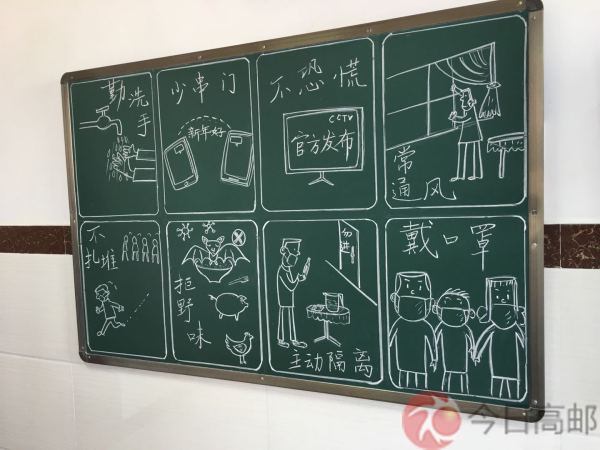 勤洗手
少串门
新年好
不恐慌
CCTV
官方发布
常
通风
不
扎堆
拒野味
勿进
主动隔离
戴口罩
今日高邮